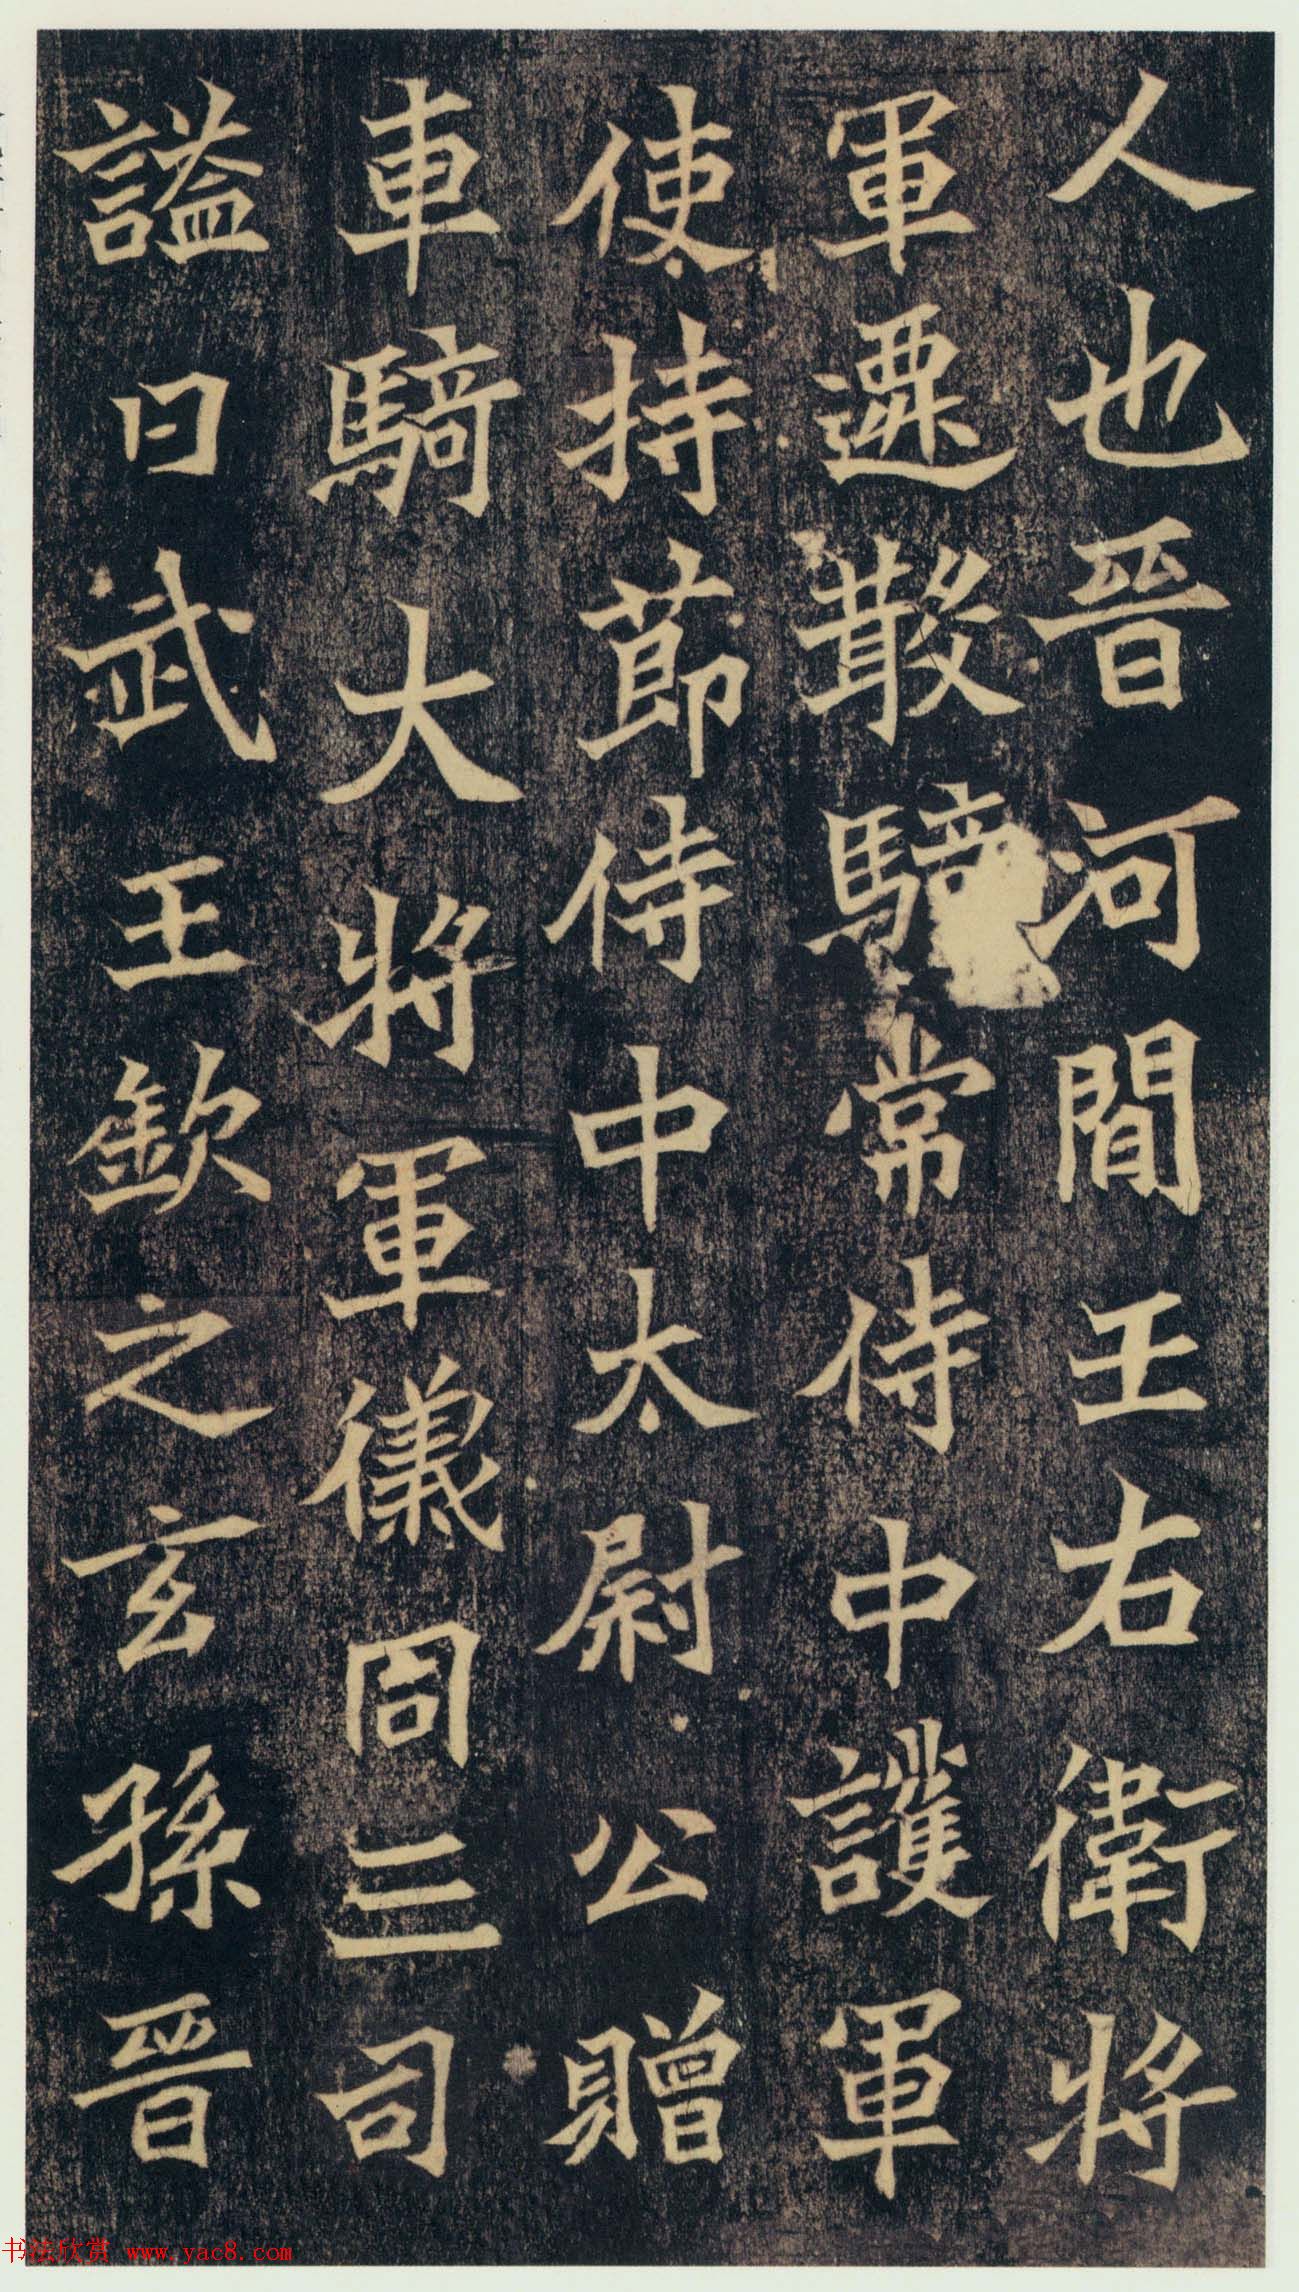 人也晉河間王右衛將
軍遷散騎常侍中護軍
使持節侍中太尉公贈
車騎大將軍儀同三司
謚曰武王欽之玄孫晉
书法欣赏 www.yac8.com